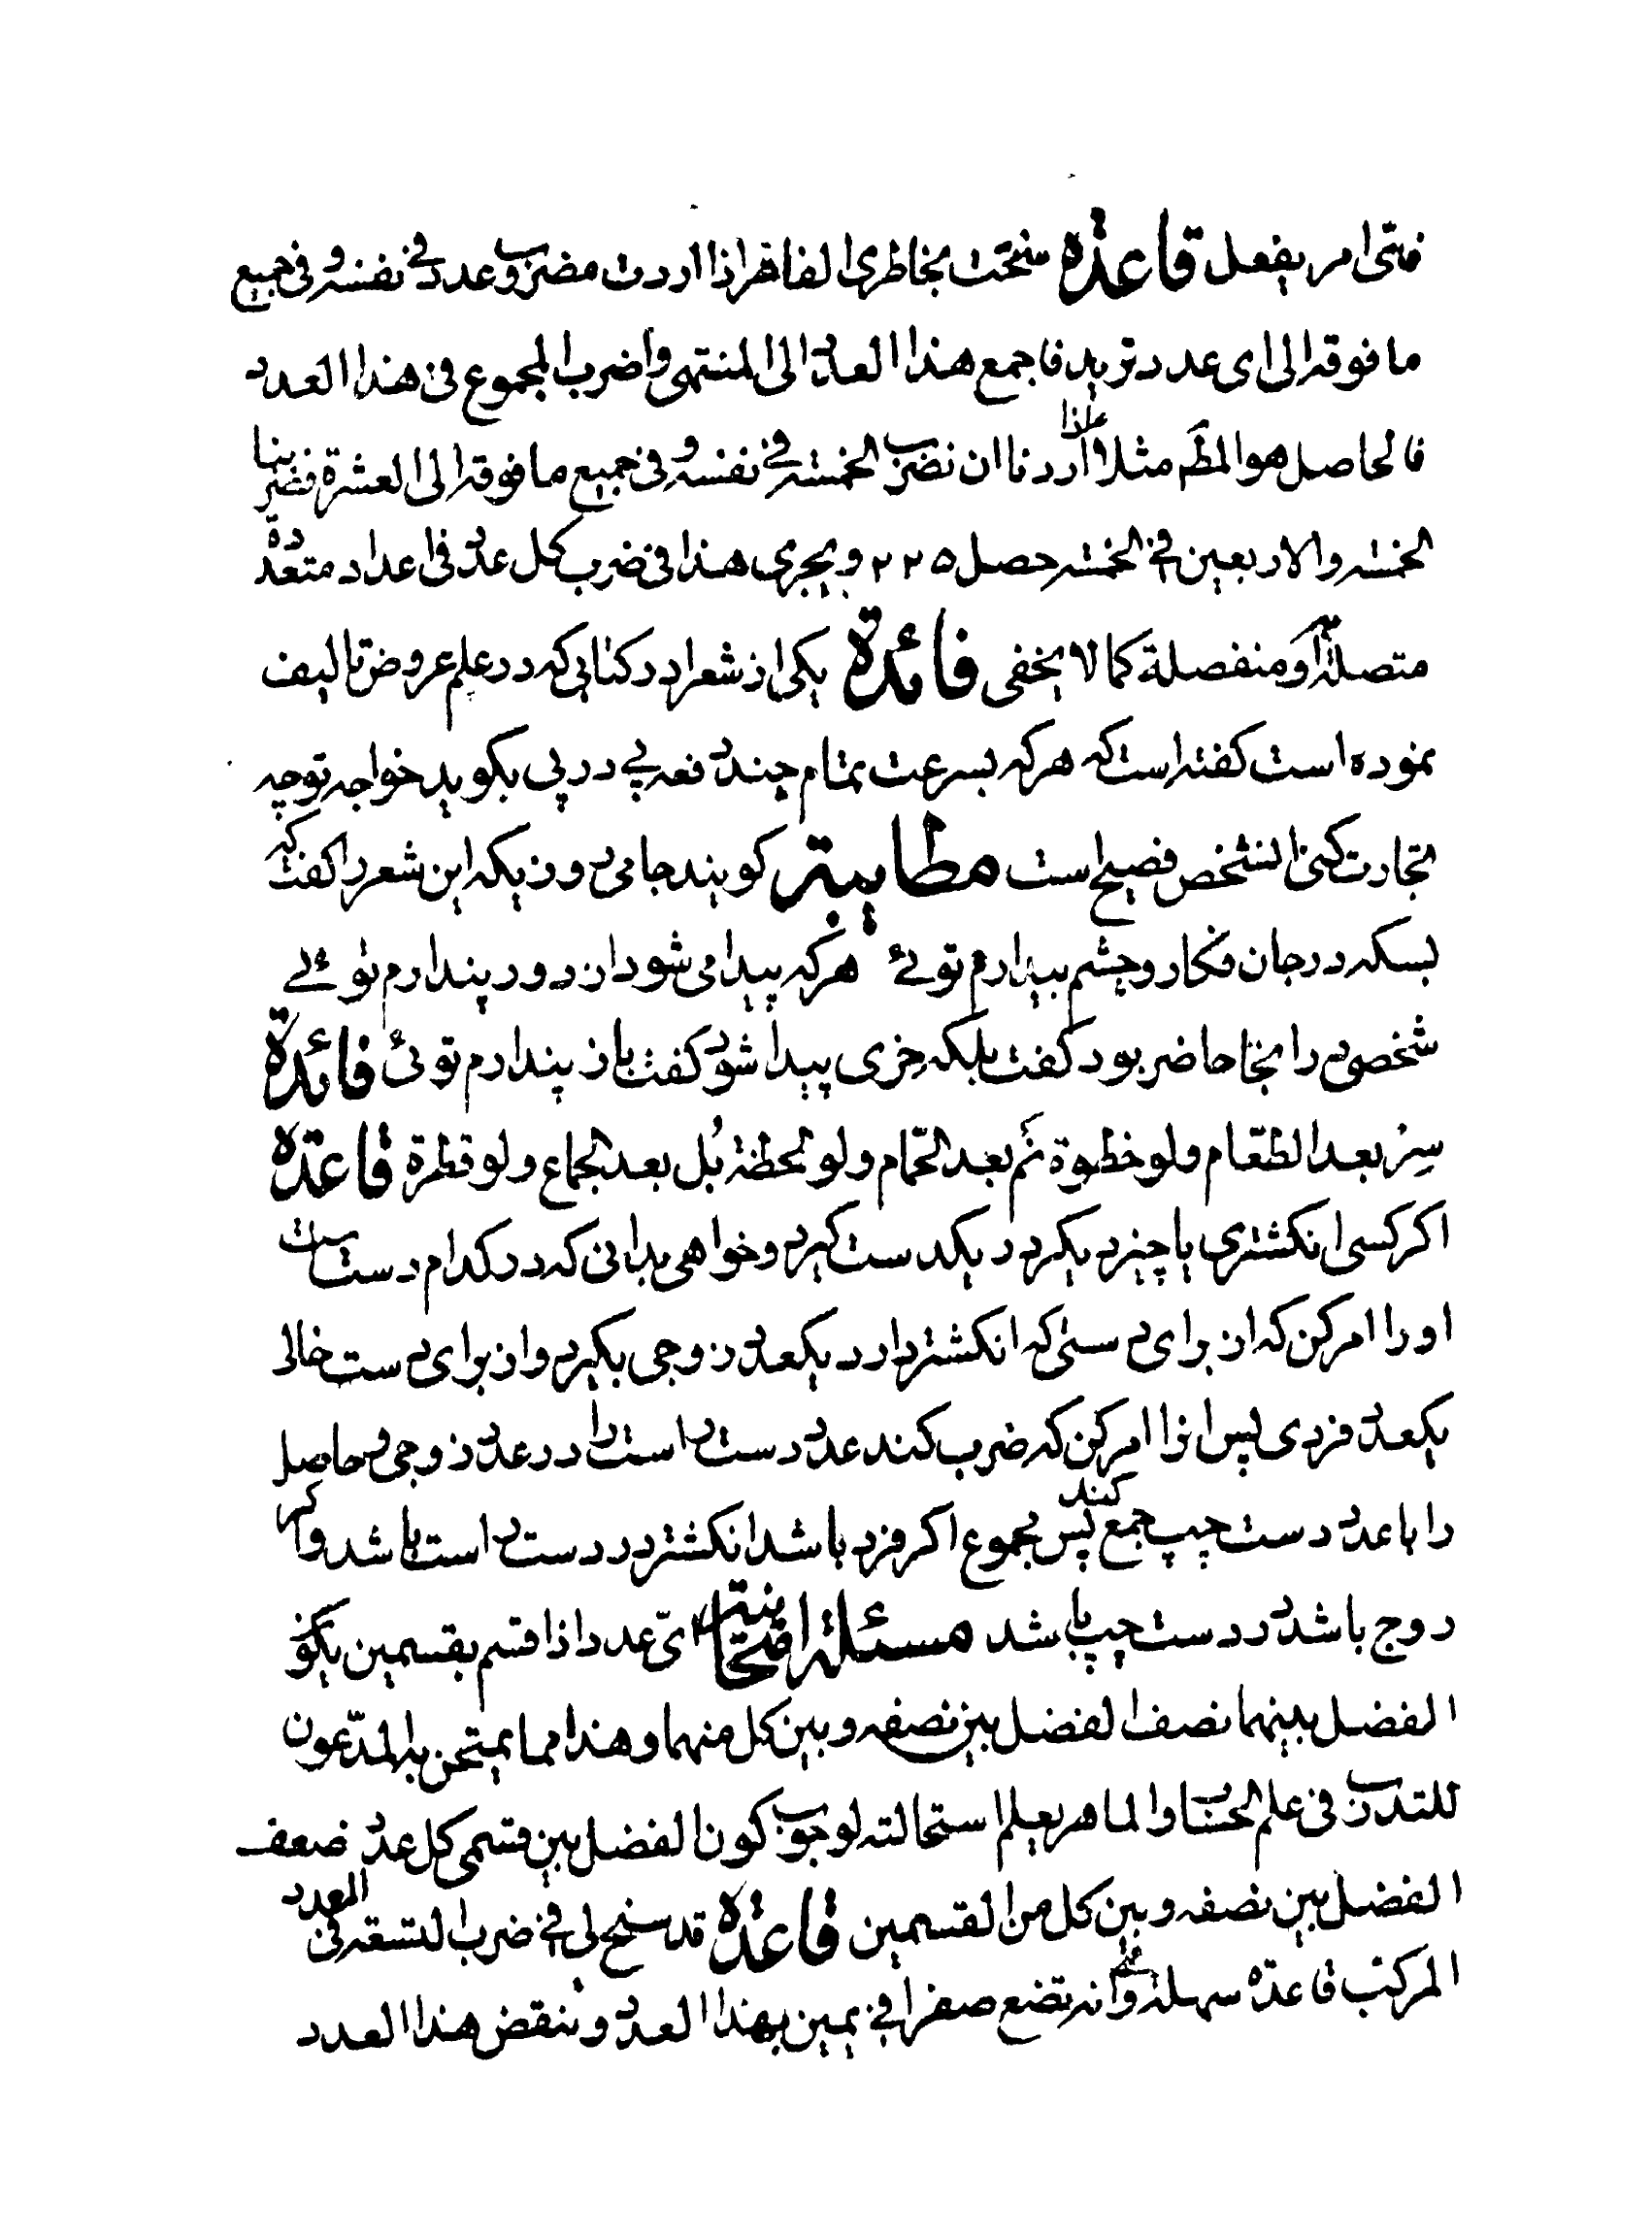 فمتی امر یفعل قاعدة سنحت بخاطری الفاتر اذا اردت مضروب عدد فی نفسه و فی جمیع
ما فوقه الی ای عدد ترید فاجمع هذا العدد الی المنتهی واضرب المجموع فی هذا العدد
فالحاصل هو المط مثلا اردنا ان نضرب الخمسة فی نفسه و فی جمیع ما فوقه الی العشرة فضربنا
الخمسه والاربعین فی الخمسه حصل ٢٢٥ ویجری هذا فی ضرب کل عدد فی اعداد متعددة
متصلة او منفصلة کما لا یخفی فائدة یکی از شعرا در کتابی که در علم عروض تالیف
نموده است کفته است که هر که بسرعت تمام چند دفعه پی در پی بکوید خواجه تو چه
تجارت کنی الشخص فصیح است مطایبة کویند جامی روزیکه این شعر را کفت که
بسکه در جان فکار و چشم بیدارم توئی هر که پیدا می شود از دور پندارم توئی
شخصی در انجا حاضر بود کفت بلکه خری پیدا شود کفت باز پندارم توئی فائدة
سِرْ بعد الطعام ولو خطوة نَم بعد الحمّام ولو لحظة بُل بعد الجماع ولو قطرة قاعدة
اکر کسی انکشتری یا چیز دیکر در یکدست کیرد و خواهی بدانی که در کدام دست است
او را امر کن که از برای دستی که انکشتر دارد یکعدد زوجی بکیرد و از برای دست خالی
یکعدد فردی پس انرا امر کن که ضرب کند عدد دست راست را در عدد زوجی حاصل
را با عدد دست چپ جمع کند پس مجموع اکر فرد باشد انکشتر در دست راست باشد و اکر
زوج باشد در دست چپ باشد مسئلة امتحانیة ایّ عدد اذا قسم بقسمین یکون
الفضل بینهما نصف الفضل بین نصفه و بین کل منهما و هذا مما یمتحن به المدّعون
للتدرب فی علم الحساب والماهر یعلم استحالته لوجوب کون الفضل بین قسمی کل عدد ضعف
الفضل بین نصفه و بین کل من القسمین قاعدة قد سنح لی فی ضرب التسعة فی العدد
المرکب قاعدة سهلة و هی انه تضع صفرا فی یمین بهذا العدد و تنقص هذا العدد